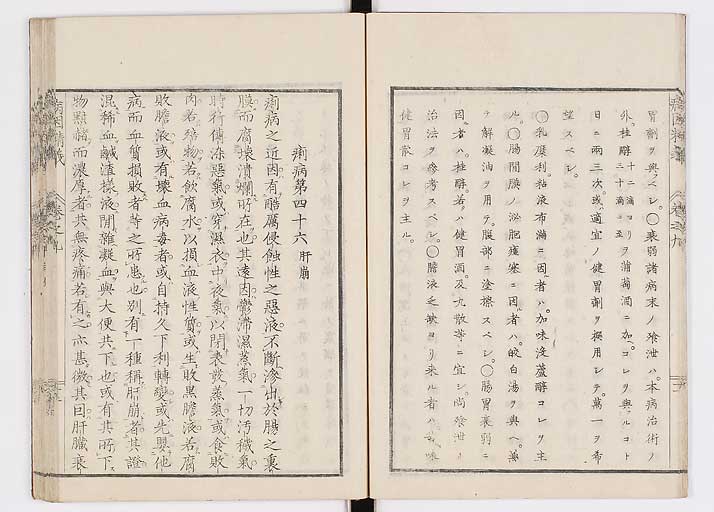 胃劑ヲ與フベシ。〇衰弱諸病末ノ飧泄ハ。本病治術ノ
外。桂醇十二滴コリ三十滴ニ至ヲ葡萄酒ニ加ヘ。コレヲ與フルコト
日ニ兩三次。或ハ適宜ノ健胃劑ヲ撰用シテ。萬一ヲ希
望スベシ。
〇乳糜利。粘液布滿ニ因者ハ。加味沒蘆醇コレヲ主
ル。〇腸間膜ノ泌肥壅塞ニ因ル者ハ。皎白湯ヲ與ヘ。兼
テ解凝油ヲ用テ。腹部ニ塗擦スベシ。〇腸胃衰弱ニ
因ル者ハ。桂醇。若ハ健胃酒。及丸散等ニ宜シ。尚飧泄ノ
治法ヲ參考スベシ。〇膽液乏缺ヨリ來ル者ハ
健胃散コレヲ主ル。
痢病第四十六 肝崩
痢病之近因。有酷厲侵蝕性之惡液。不斷滲出於腸之裏
膜。而腐壞潰爛所在也。其遠因。鬱滯濕蒸氣。一切汚穢氣
時行傳染惡氣。或穿濕衣。中夜氣。以閉表發蒸氣。或食敗
肉若穢物。若飲腐水。以損血液性質。或生敗黑膽液若腐
敗膽液。或有壞血病毒者。或自持久下利轉變。或先嬰他
病。而血質損敗者等之所患也。別有一種稱肝崩者。其證
混稀血。鹹渣樣液。間雜凝血。與大便共下也。或有其所下
物黏豬而濃厚者。共無疼痛。若有之亦甚微。其因肝臟衰